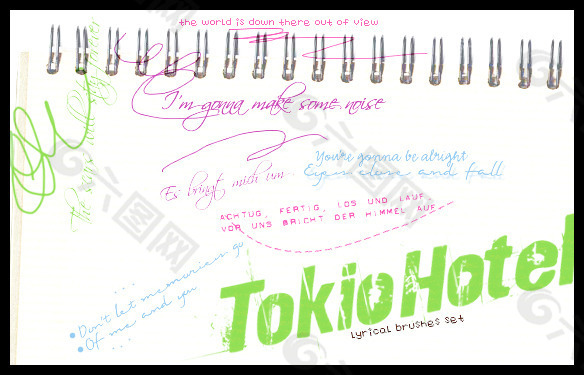 the world is down there out of view
I'm gonna make some noise
You're gonna be alright
Eyes close and fall
Es bringt mich um
ACHTUG, FERTIG, LOS UND LAUF,
VOR UNS BRICHT DER HIMMEL AUF
Don't let memories go
Of me and you
Tokio Hotel
lyrical brushes set